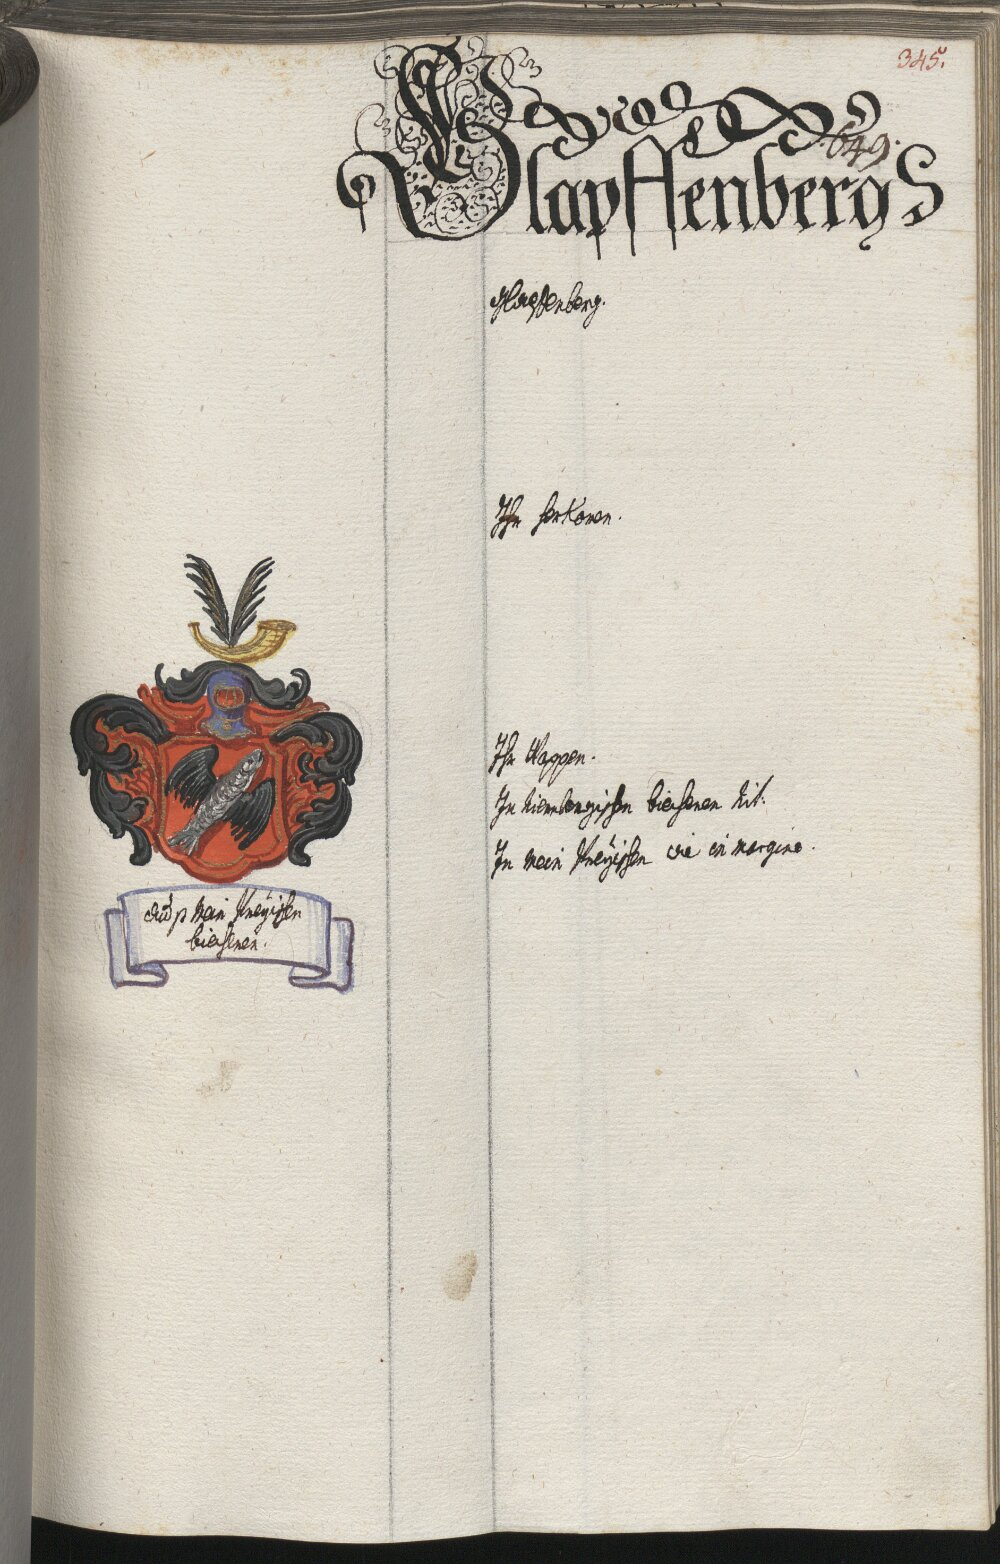 345.
649.
Glapffenberg
Glapffenberg.
Ihr herkomen.
Ihr Wappen.
In Niernbergischen biechern nit.
In mein Preÿischen wie in margine.
Auß mein Preÿischen
biechern.